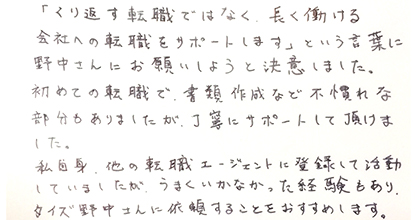 「くり返す転職ではなく、長く働ける
会社への転職をサポートします」という言葉に
野中さんにお願いしようと決意しました。
初めての転職で、書類作成など不慣れな
部分もありましたが、丁寧にサポートして頂けま
した。
私自身、他の転職エージェントに登録して活動
していましたが、うまくいかなかった経験もあり、
タイズ野中さんに依頼することをおすすめします。